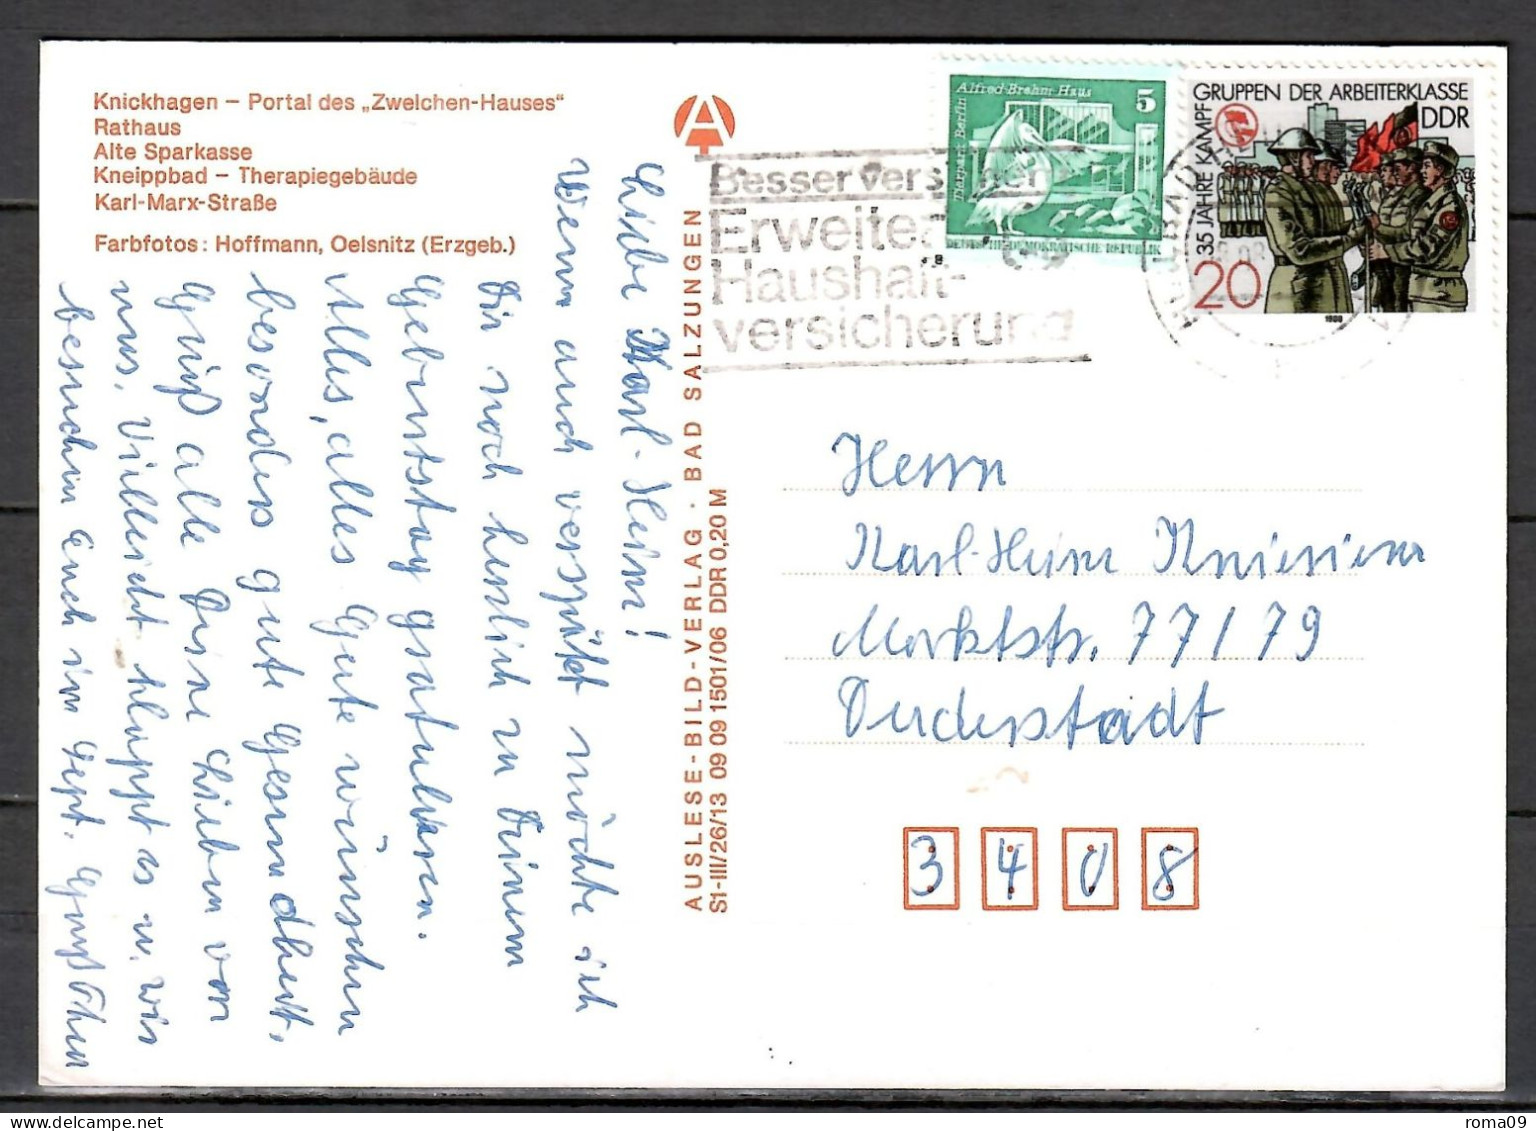 Knickhagen – Portal des „Zweichen-Hauses“
Rathaus
Alte Sparkasse
Kneippbad – Therapiegebäude
Karl-Marx-Straße
Farbfotos: Hoffmann, Oelsnitz (Erzgeb.)
Liebe Karl-Heinz!
Wenn auch verspätet möchte ich
Dir noch herzlich zu Deinem
Geburtstag gratulieren.
Alles, alles Gute wünschen
besonders gute Gesundheit,
Grüß alle Deine Lieben von
uns, Vielleicht klappt es u. wir
besuchen Euch im Sept. Gruß
AUSLESE-BILD-VERLAG · BAD SALZUNGEN
S1-III/26/13 09 09 1501/06 DDR 0,20 M
Besser vers
Erweiter
Haushalt-
versicherung
Alfred-Brehm-Haus
5
Tierpark Berlin
DEUTSCHE DEMOKRATISCHE REPUBLIK
35 JAHRE KAMPF
GRUPPEN DER ARBEITERKLASSE
DDR
20
1988
Herrn
Karl-Heinz
Marktstr. 77/79
Duderstadt
3408
roma09